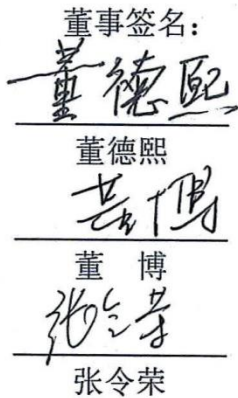 董事签名：
董德熙
董德熙
董博
董 博
张令荣
张令荣